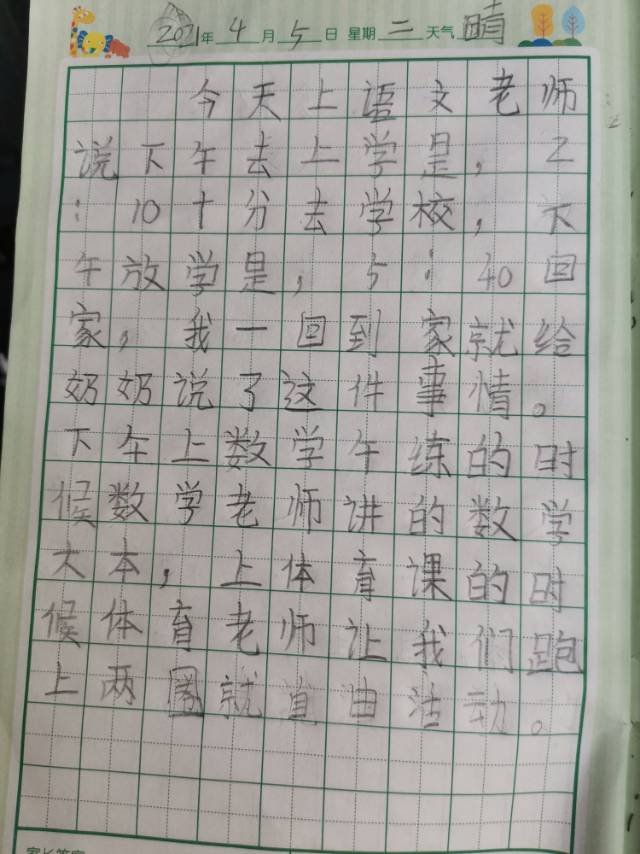 2021年4月5日 星期二 天气 晴
今天上语文老师
说下午去上学是，2
：10十分去学校，下
午放学是，5：40回
家，我一回到家就给
奶奶说了这件事情。
下午上数学午练的时
候数学老师讲的数学
大本，上体育课的时
候体育老师让我们跑
上两圈就直由活动。